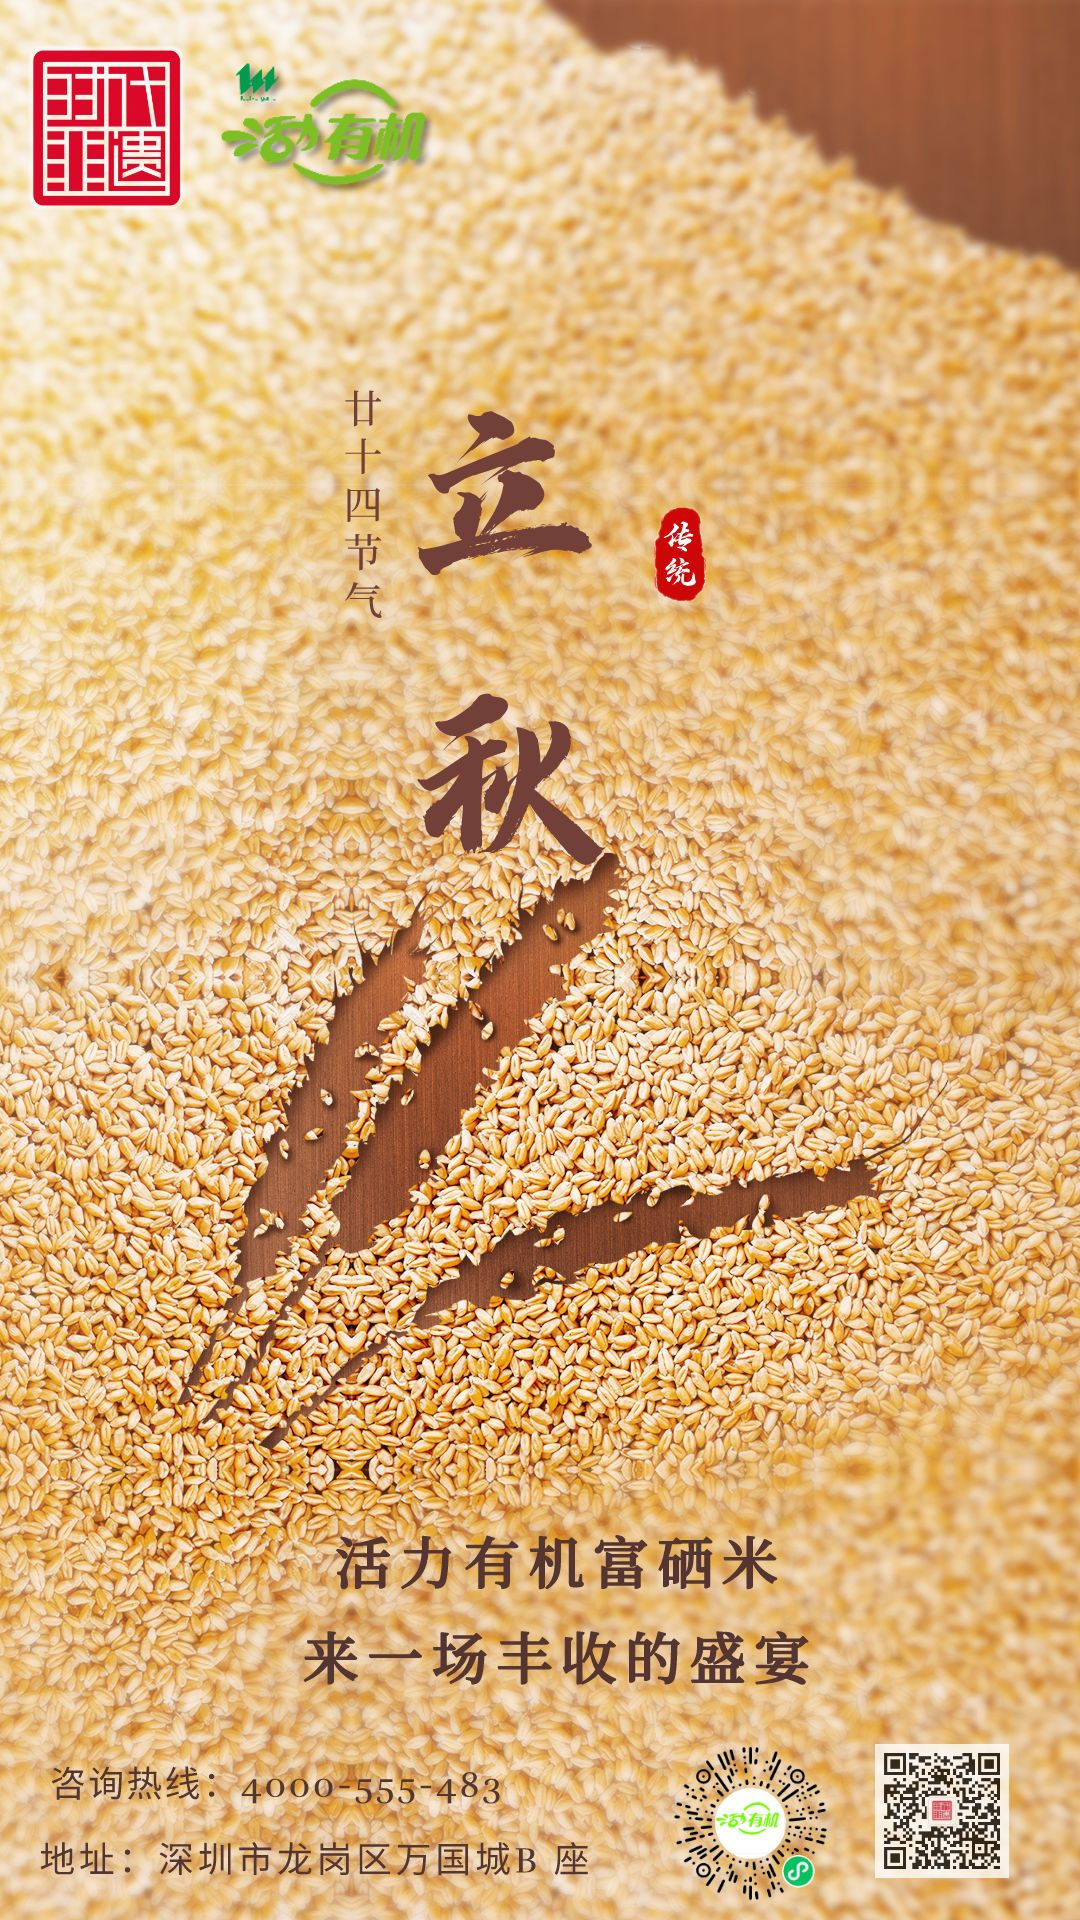 时代
非遗
活力有机
廿十四节气
立秋
传统
活力有机富硒米
来一场丰收的盛宴
咨询热线：4000-555-483
地址：深圳市龙岗区万国城B 座
活力有机